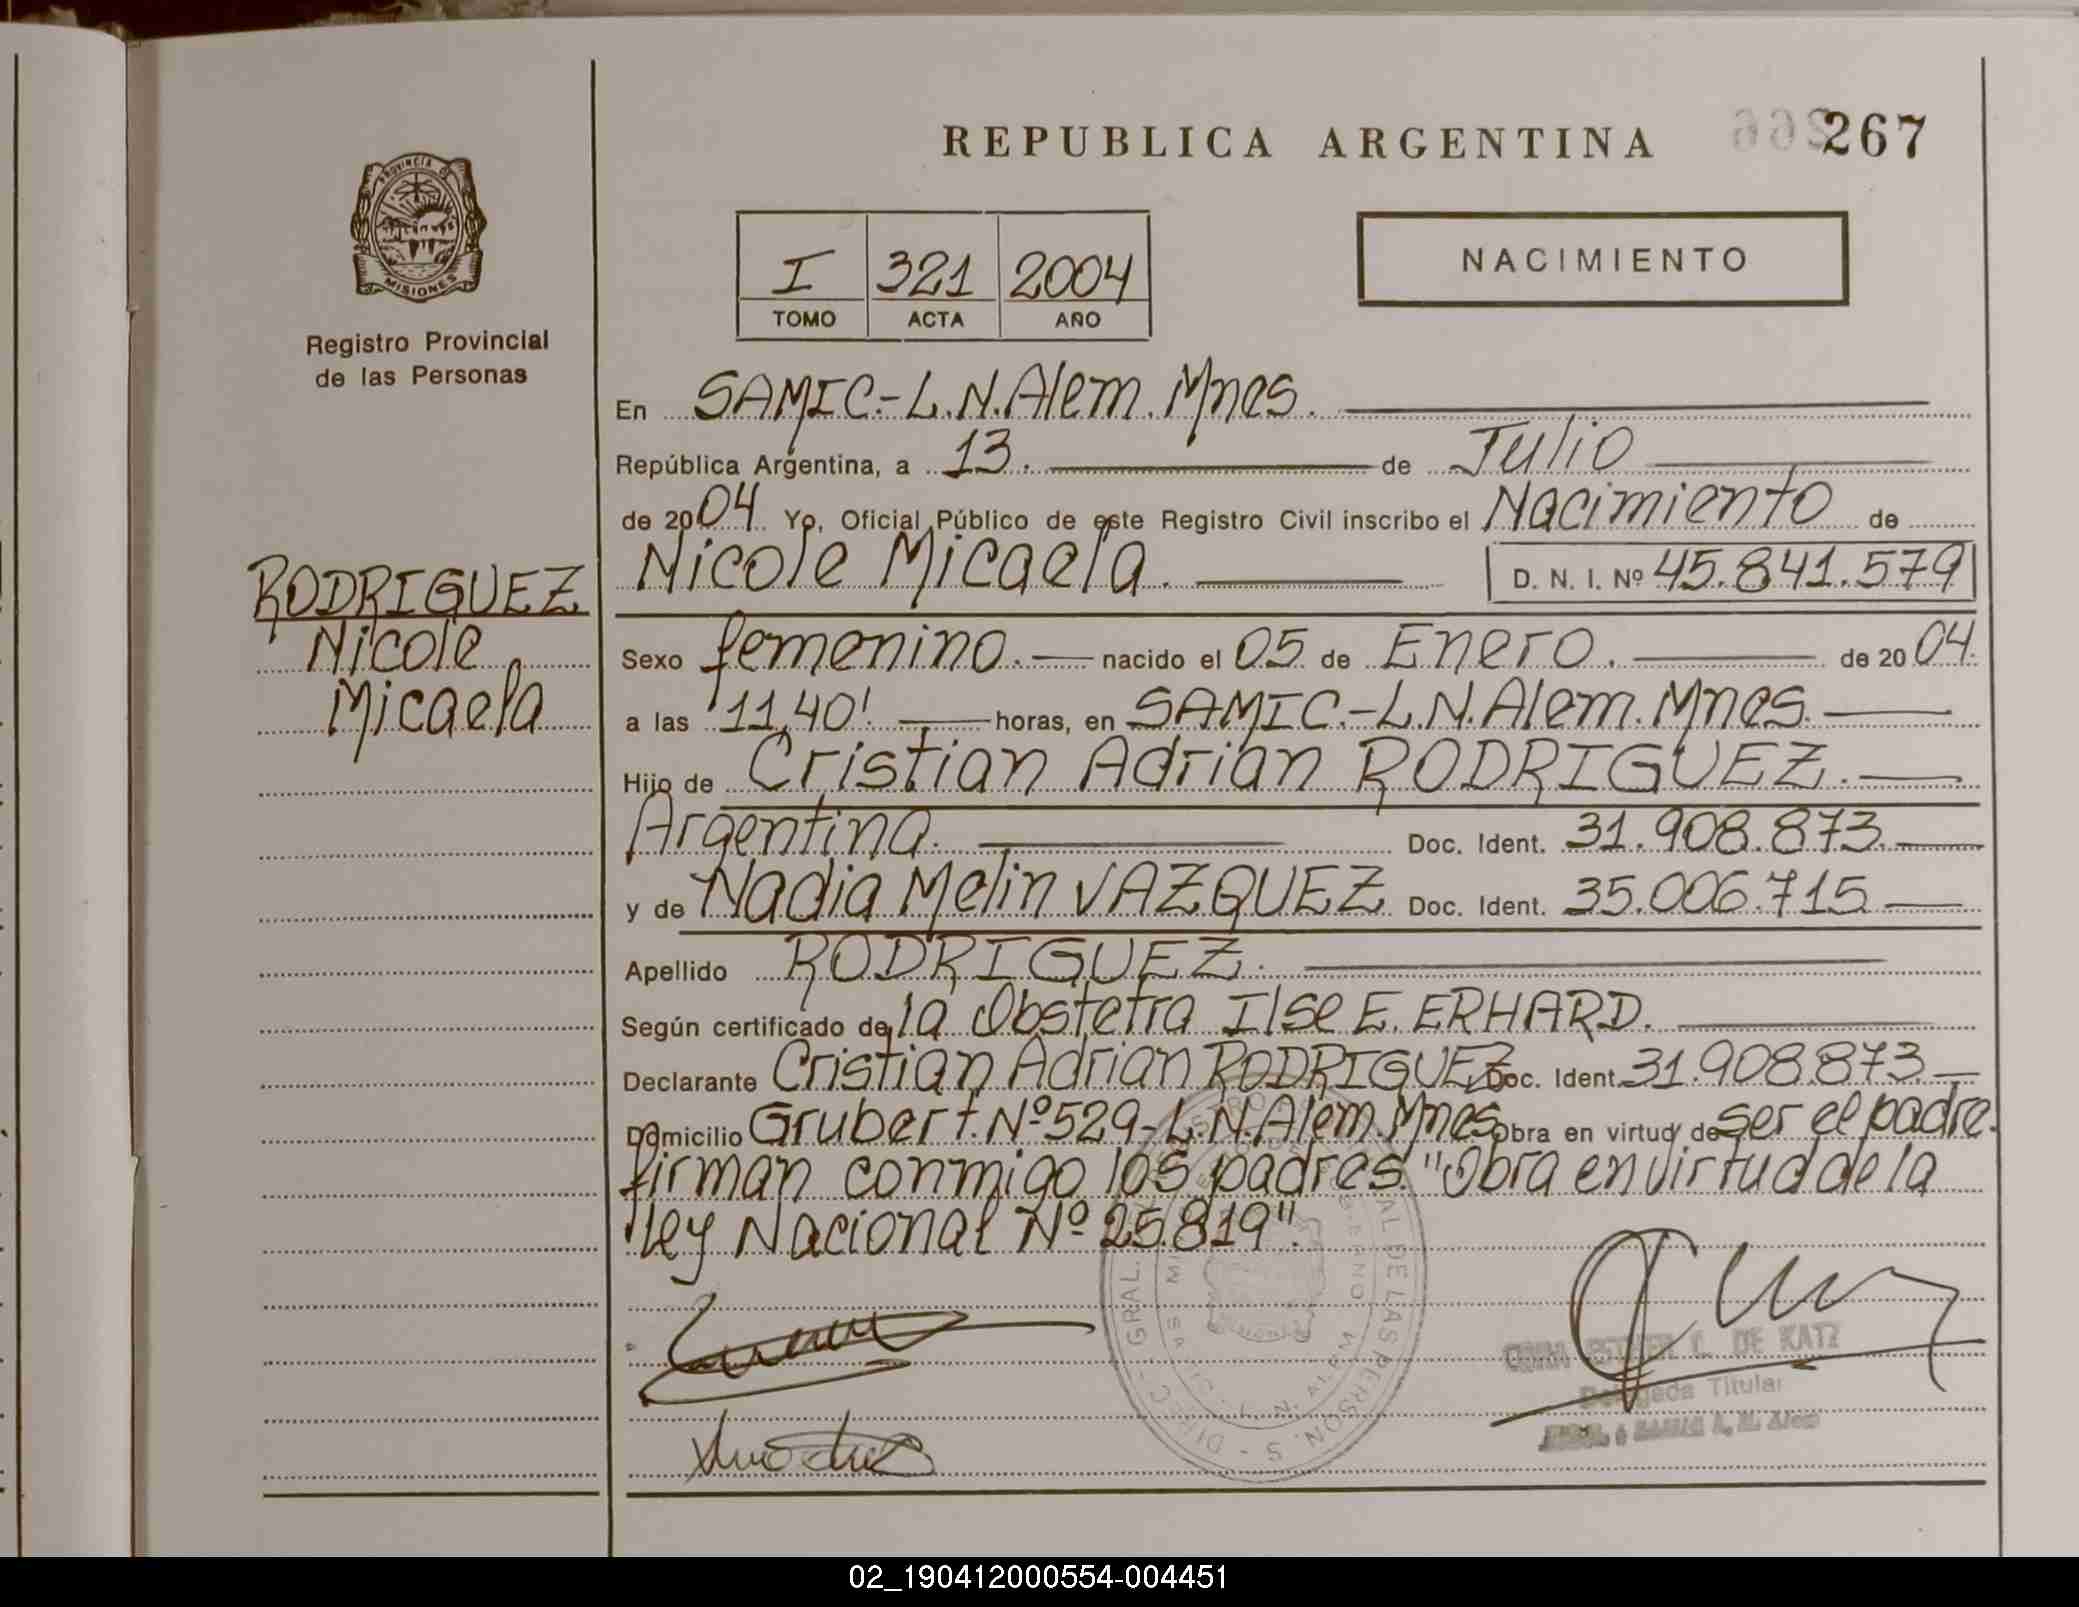 REPUBLICA ARGENTINA
267
PROVINCIA
MISIONES
Registro Provincial
de las Personas
I 321 2004
TOMO ACTA AÑO
NACIMIENTO
En SAMIC.-L.N.Alem. Mnes.
República Argentina, a 13. de Julio
de 2004 Yo, Oficial Público de este Registro Civil inscribo el Nacimiento de
Nicole Micaela. D. N. I. Nº 45.841.579
RODRIGUEZ
Nicole
Micaela
Sexo femenino. nacido el 05 de Enero. de 2004.
a las 11,40'. horas, en SAMIC.-L.N.Alem. Mnes.
Hijo de Cristian Adrian RODRIGUEZ.
Argentina. Doc. Ident. 31.908.873.
y de Nadia Melin VAZQUEZ Doc. Ident. 35.006.715
Apellido RODRIGUEZ.
Según certificado de la Obstetra Ilse E. ERHARD.
Declarante Cristian Adrian RODRIGUEZ Doc. Ident. 31.908.873.
Domicilio Grubert. Nº 529-L.N.Alem. Mnes Obra en virtud de ser el padre.
firman conmigo los padres. "Obra en virtud de la
ley Nacional Nº 25.819".
ESTHER L. DE KATZ
Delegada Titular
02_190412000554-004451